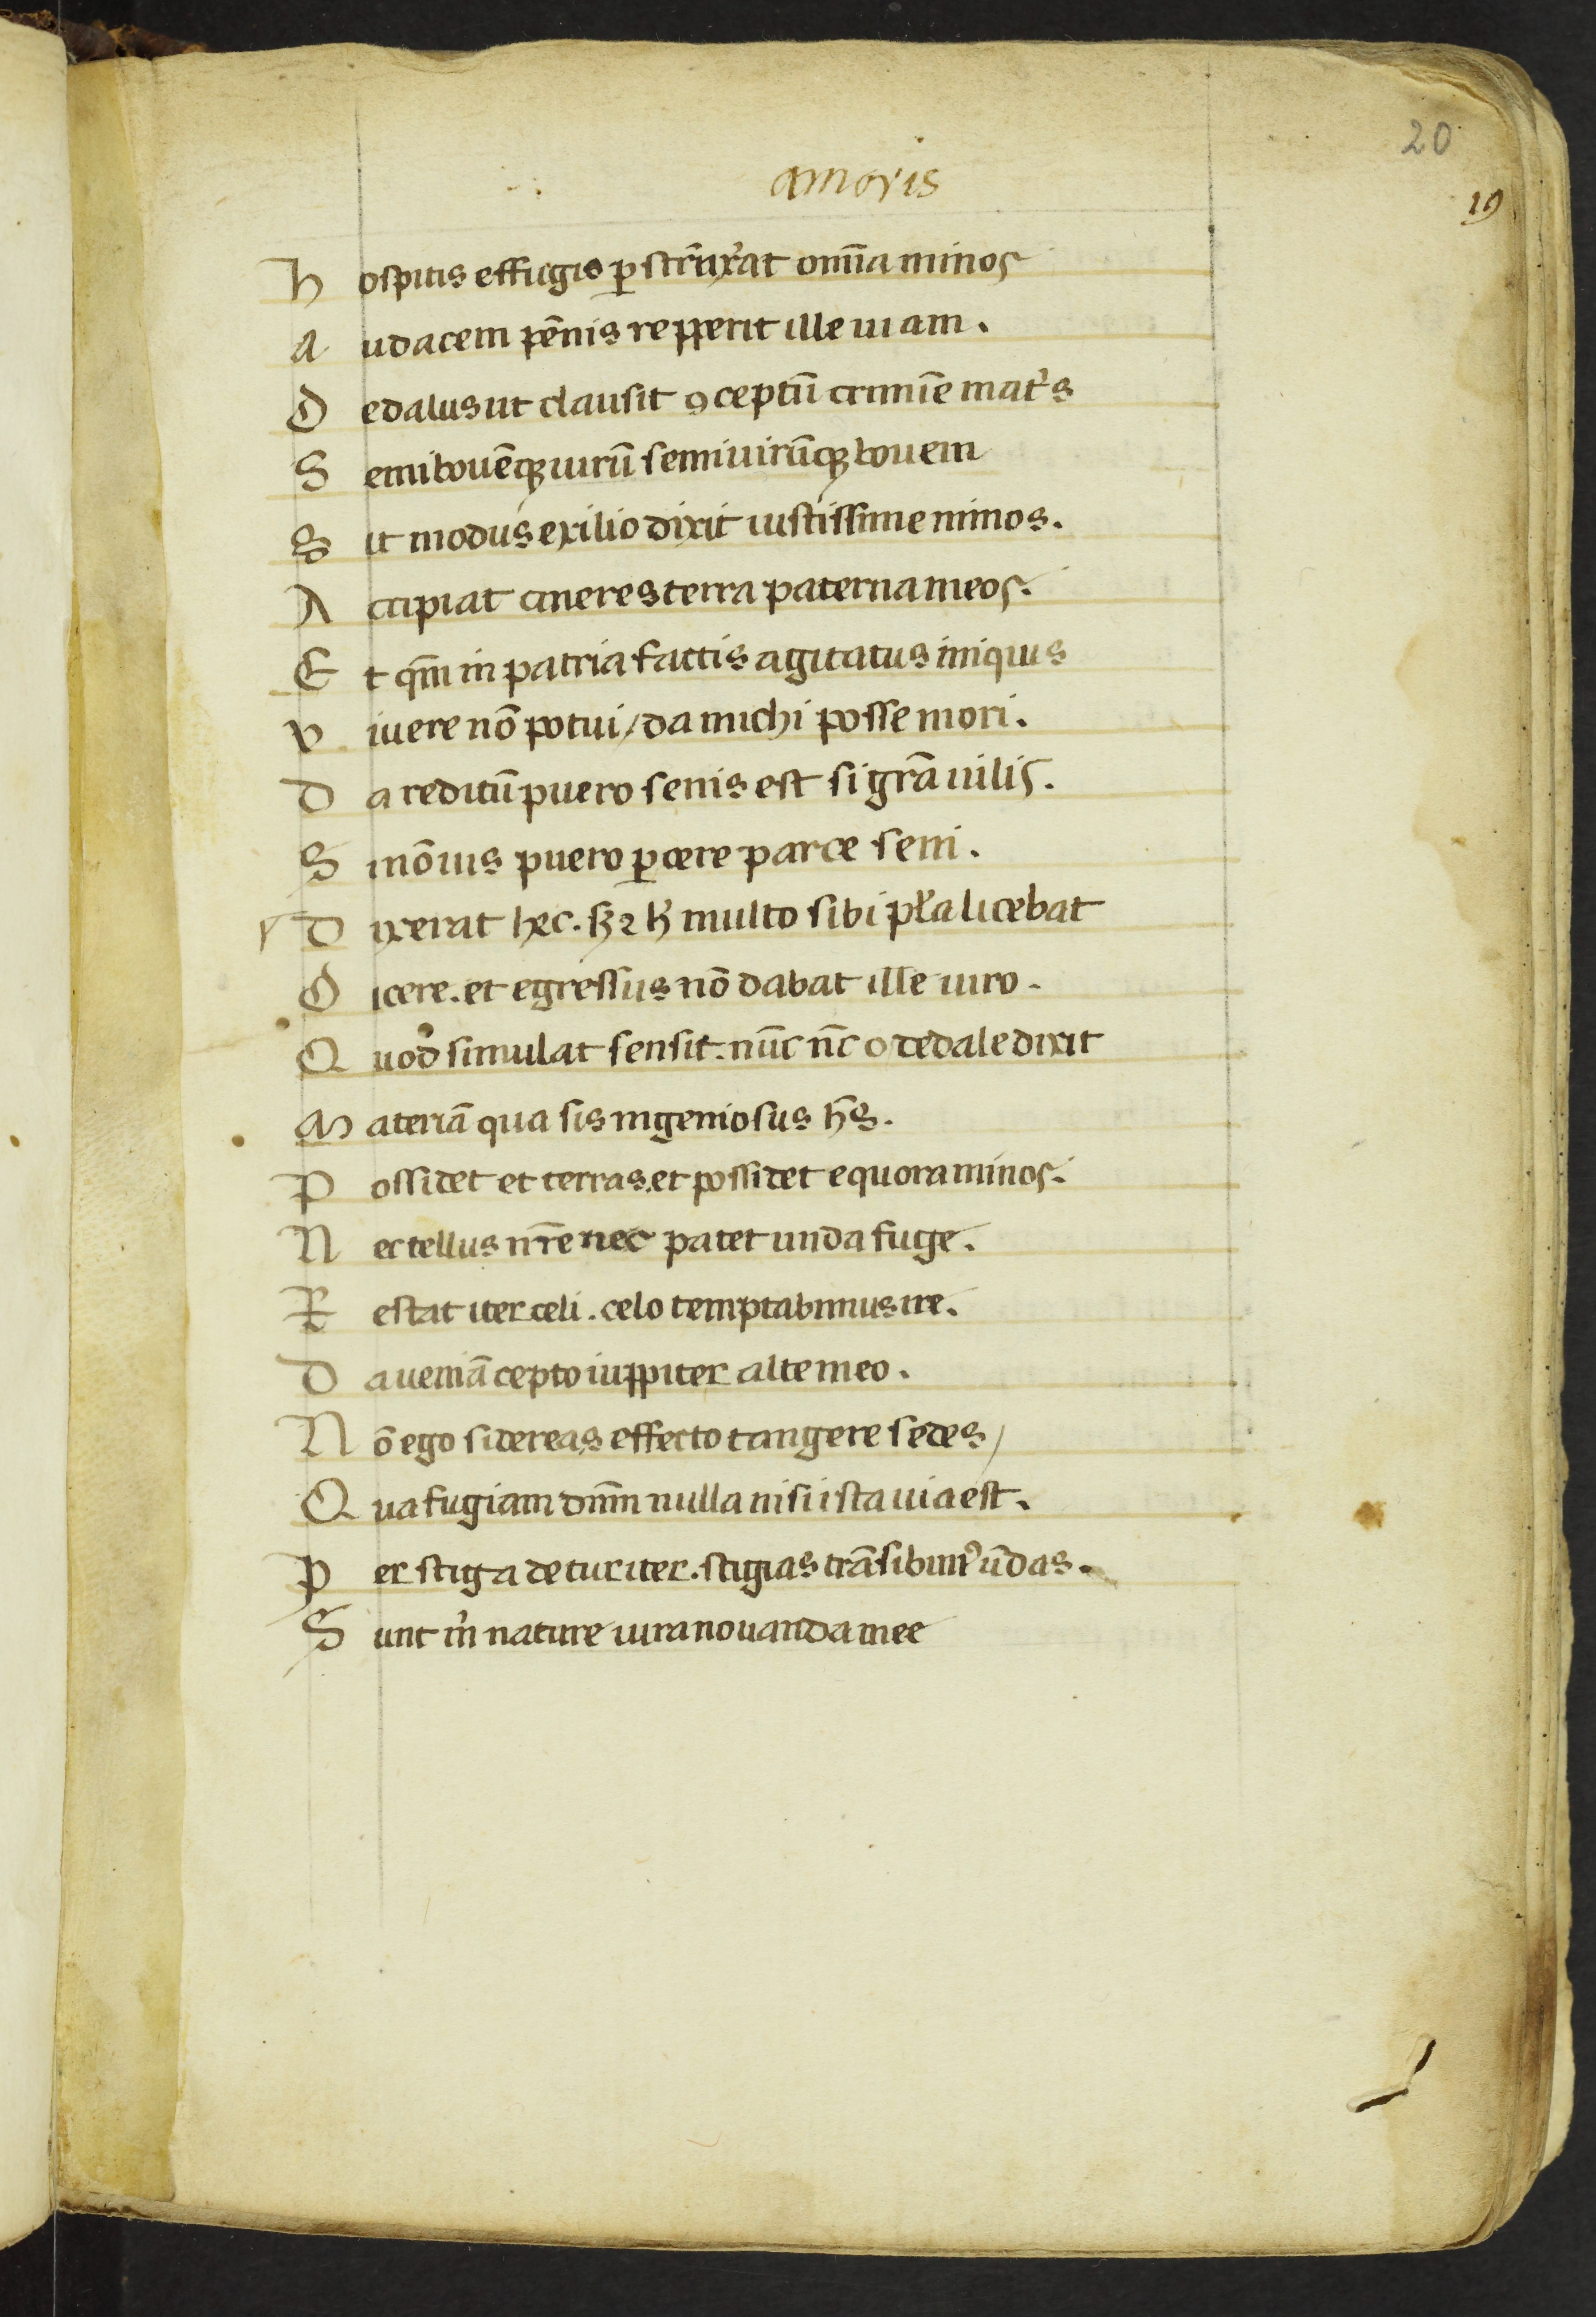 20
amoris
19
Hospitis effugio p̲ struxᷣat om̅ia minos
Audacem pēnis repperit ille uiam.
Dedalus ut clausit ꝯceptū crimīe mat͛s
Semibouēqꝫ uirū semiuirūqꝫ bouem
Sit modus exilio dixit iustissime minos.
Accipiat cineres terra paterna meos.
Et qm̅ in patria factis agitatus iniquis
Viuere nō potui / da michi posse mori.
Da reditū puero senis est si grā uilis.
Si nō uis puero ꝑcere parce seni.
Dixerat hec. sꝫ ⁊ h̅ multo sibi pl̅a licebat
Dicere. et egressus nō dabat ille uiro.
Quod simulat sensit. nūc nc̅ o dedale dixit
Materiā qua sis ingeniosus hēs.
Possidet et terras. et possidet equora minos.
Nec tellus nr̅e nec patet unda fuge.
Restat iter celi. celo temptabimus ire.
Da ueniā cepto iuppiter alte meo.
Nō ego sidereas effecto tangere sedes /
Qua fugiam dnm̅ nulla nisi ista uia est.
Per stiga detur iter. stigias trāsibimꝰ ūdas.
Sunt m̅ nature iura nouanda mee